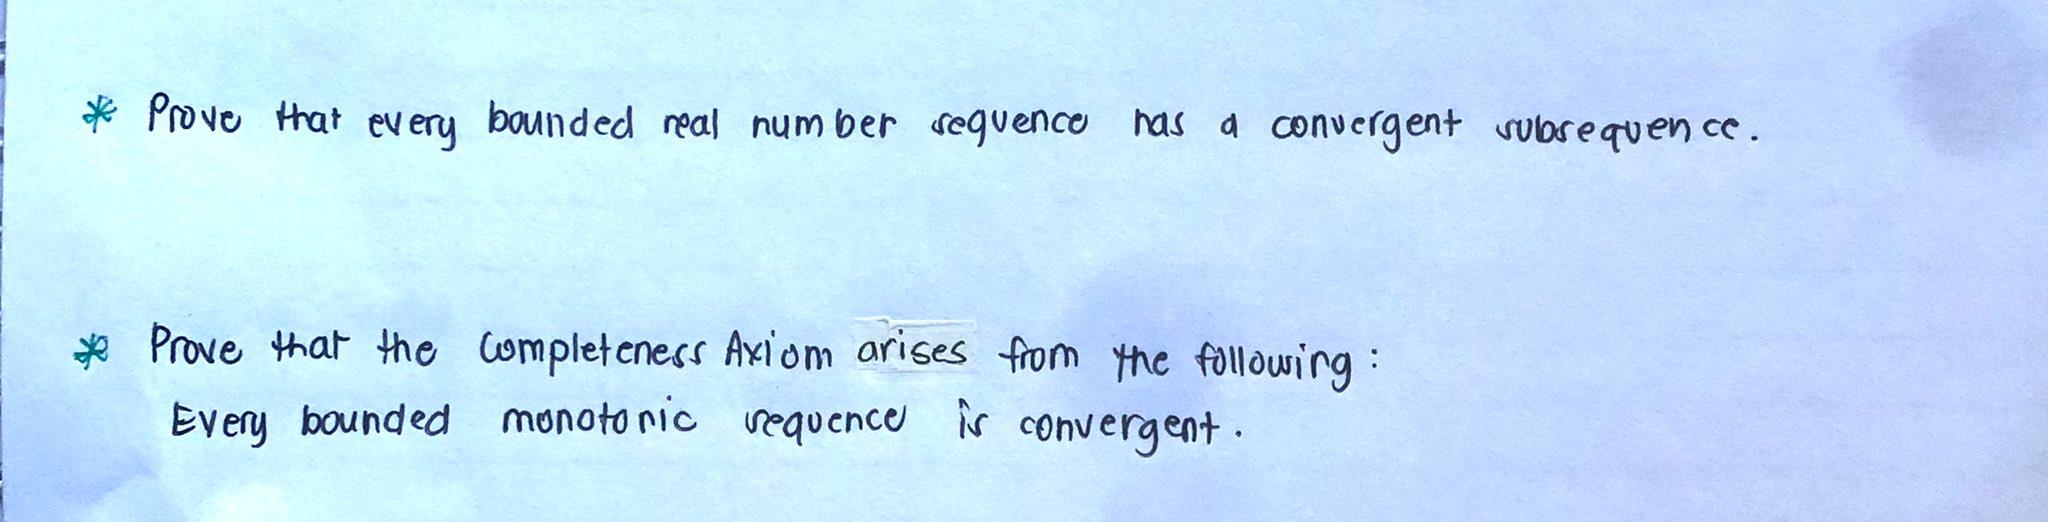 * Prove that every bounded real number sequence has a convergent subsequence.
* Prove that the Completeness Axiom arises from the following :
Every bounded monotonic sequence is convergent.